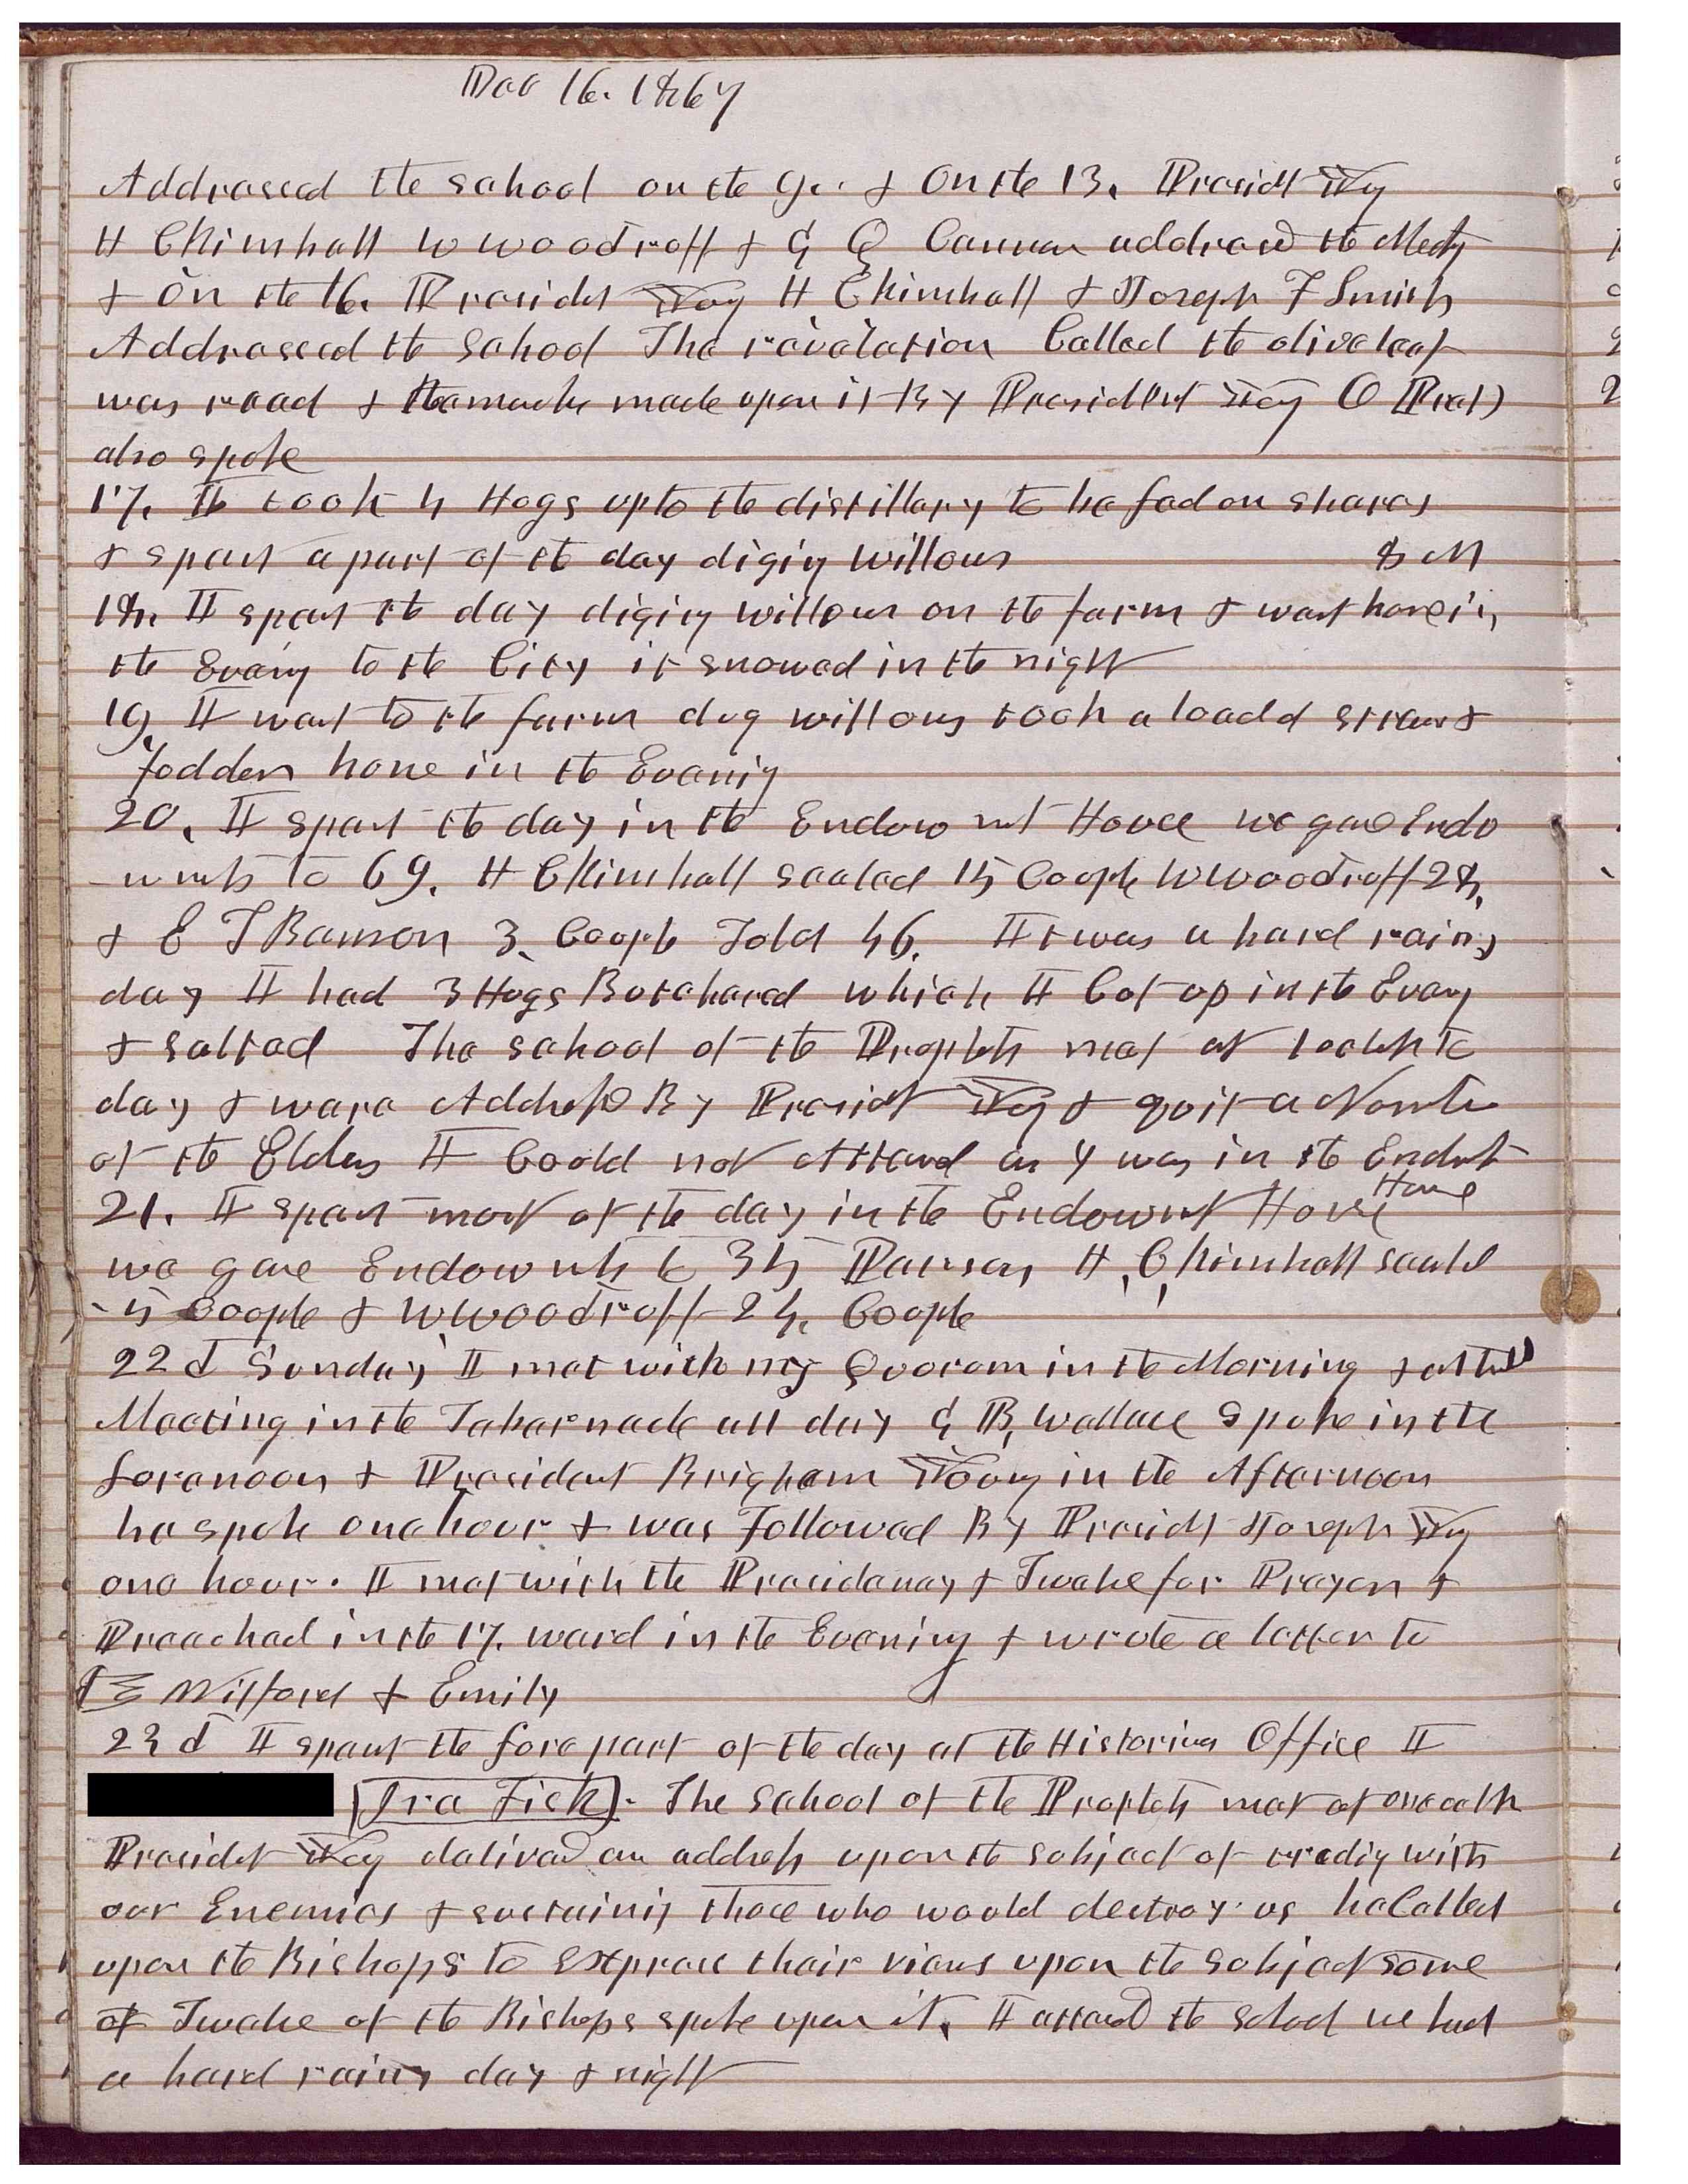 Dec 16. 1867
Addressed the school on the 9th. & On the 13. Presidt Yg
H C Kimball W Woodruff & G Q Cannon addressed the Meetg
& on the 16. Presidet Yog H C Kimball & Joseph F Smith
Addressed the School The revelation Called the olive leaf
was read & Remarks made upon it By President Yog O Prat
also spoke
17. I took 4 Hogs up to the distillery to be fed on shares
& spent a part of the day digig willows 8 M
18. I spent the day digig willows on the farm & went home in
the Eveng to the City it snowed in the night
19. I went to the farm dug willows took a load of straw &
fodder home in the Evenig
20. I spent the day in the Endowmt House we gave Endo
-wmts to 69. H C Kimball sealed 15 Couple W Woodruff 28,
& E T Benson 3. Couple Total 46. It was a hard rainy
day I had 3 Hogs Butchered which I Cut up in the Eveng
& salted The school of the Prophets met at 1 oclok to
day & were Address By Presidt Yog & quit a Numbr
of the Elders I Could not attend as I was in the Endmt
House
21. I spent most of the day in the Endowmt House
we gave Endowmts to 35 Persons H. C. Kimball sealed
-5 Couple & W Woodruff 24. Couple
22d Sunday I met with my Quorum in the Morning & attend
Meeting in the Tabernacle all day G B, Wallace spoke in the
forenoon & President Brigham Youg in the Afternoon
he spoke one hour & was Followed By Presidt Joseph Yug
one hour. I met with the Presidency & Twelve for Prayer &
Preached in the 17. ward in the Evening & wrote a letter to
Wilford & Emily
23d I spent the fore part of the day at the Historians Office I
Ira Fisk. The School of the Prophets met at one oclk
Presidet Yog deliverd an address upon the subject of tradig with
our Enemies & sustainig those who would destroy us he Called
upon the Bishops to Express their views upon the subject some
of Twelve of the Bishops spoke upon it. I attend the school we had
a hard rainy day & night